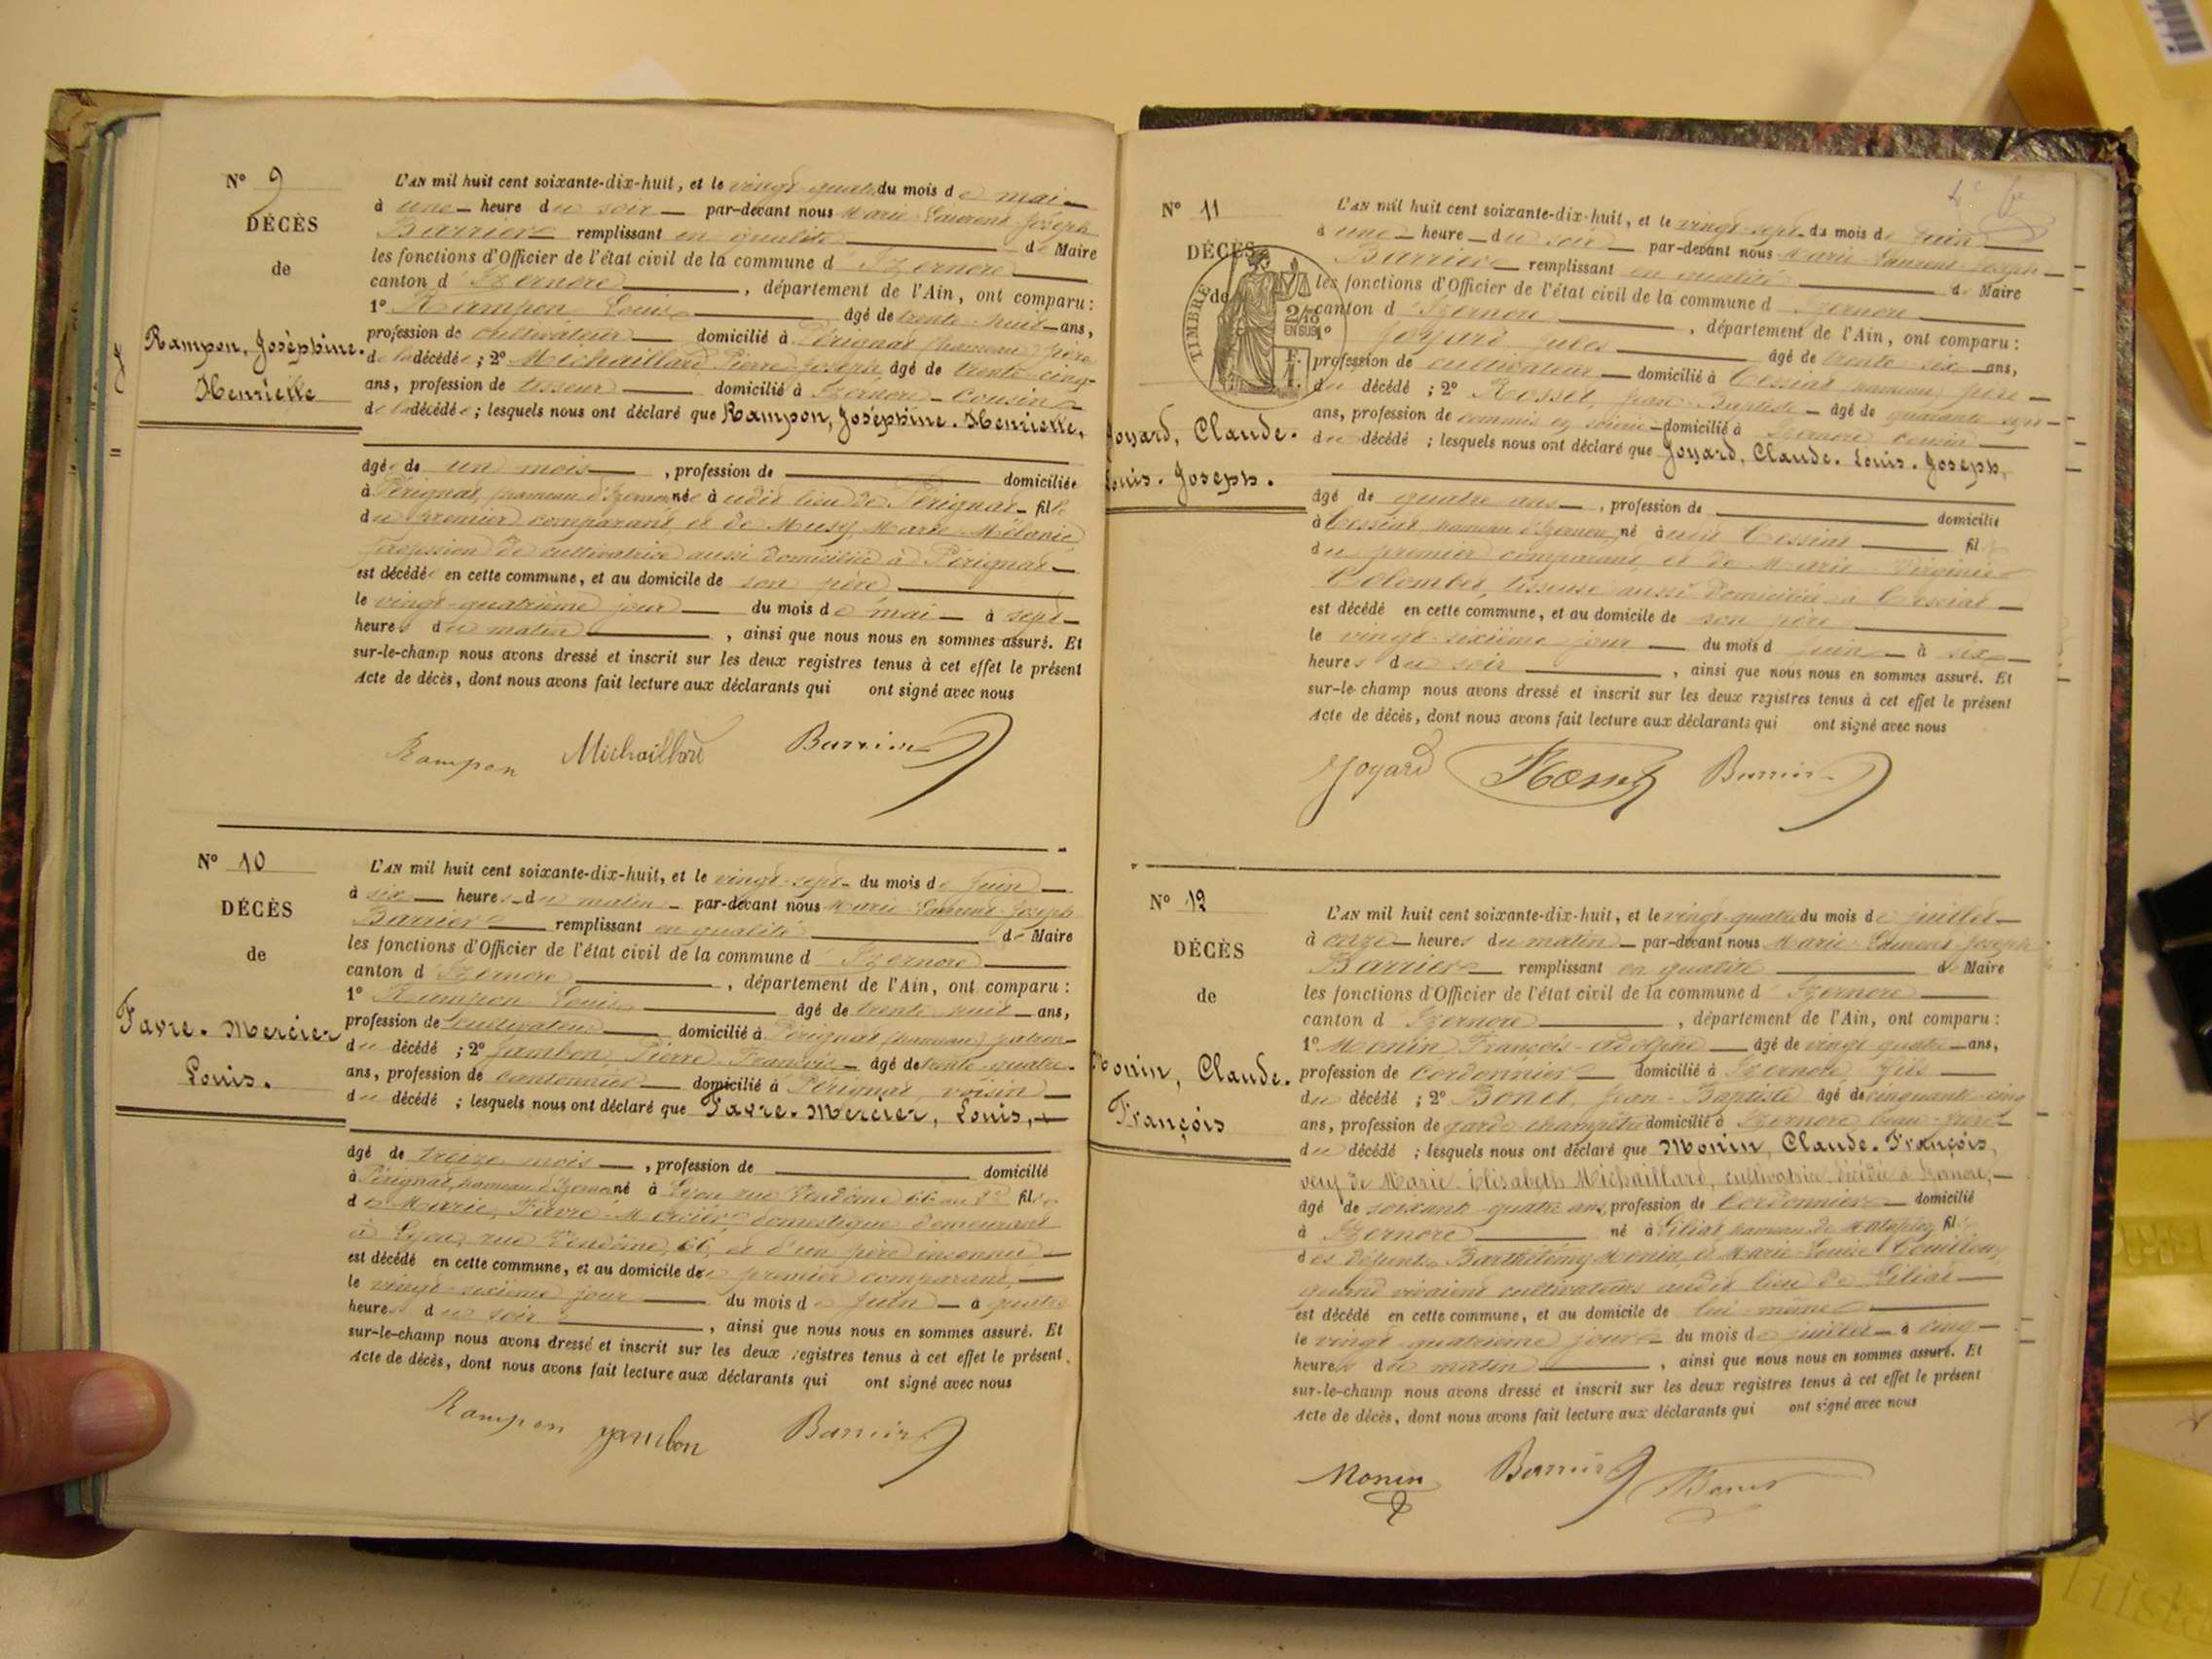 N° 9
DÉCÈS
de
Rampon, Joséphine.
Henriette
L'AN mil huit cent soixante-dix-huit, et le vingt-quatre du mois de mai
à une heure du soir par-devant nous Marie Laurent Joseph
Barrier remplissant en qualité de Maire
les fonctions d'Officier de l'état civil de la commune d'Izernore
canton d'Izernore, département de l'Ain, ont comparu :
1° Rampon Louis âgé de trente-huit ans,
profession de cultivateur domicilié à Pérignat (hameau) père
de la décédée ; 2° Michaillard Pierre Joseph âgé de trente-cinq
ans, profession de tisseur domicilié à Izernore cousin
de la décédée ; lesquels nous ont déclaré que Rampon, Joséphine. Henriette,
âgée de un mois, profession de domiciliée
à Pérignat, hameau d'Izernore née à udit lieu de Pérignat fille
du premier comparant et de Musy Marie Mélanie
profession de cultivatrice aussi domiciliée à Pérignat
est décédée en cette commune, et au domicile de son père
le vingt-quatrième jour du mois de mai à sept
heures du matin, ainsi que nous nous en sommes assuré. Et
sur-le-champ nous avons dressé et inscrit sur les deux registres tenus à cet effet le présent
Acte de décès, dont nous avons fait lecture aux déclarants qui ont signé avec nous
Rampon Michaillard Barrier
N° 10
DÉCÈS
de
Favre. Mercier
Louis.
L'AN mil huit cent soixante-dix-huit, et le vingt-sept du mois de juin
à six heures du matin par-devant nous Marie Laurent Joseph
Barrier remplissant en qualité de Maire
les fonctions d'Officier de l'état civil de la commune d'Izernore
canton d'Izernore, département de l'Ain, ont comparu :
1° Rampon Louis âgé de trente-huit ans,
profession de cultivateur domicilié à Pérignat (hameau) patron
du décédé ; 2° Jambon Pierre François âgé de trente-quatre
ans, profession de cantonnier domicilié à Pérignat, voisin
du décédé ; lesquels nous ont déclaré que Favre. Mercier, Louis,
âgé de treize mois, profession de domicilié
à Pérignat, hameau d'Izernore né à Lyon rue Vendôme 66 fils
de Marie Favre-Mercier domestique demeurant
à Lyon, rue Vendôme, 66, et d'un père inconnu
est décédé en cette commune, et au domicile du premier comparant,
le vingt-sixième jour du mois de juin à quatre
heures du soir, ainsi que nous nous en sommes assuré. Et
sur-le-champ nous avons dressé et inscrit sur les deux registres tenus à cet effet le présent
Acte de décès, dont nous avons fait lecture aux déclarants qui ont signé avec nous
Rampon Jambon Barrier
N° 11
DÉCÈS
de
TIMBRE
2/10
EN SUS
Joyard, Claude.
Louis. Joseph.
L'AN mil huit cent soixante-dix-huit, et le vingt-sept du mois de juin
à une heure du soir par-devant nous Marie Laurent Joseph
Barrier remplissant en qualité de Maire
les fonctions d'Officier de l'état civil de la commune d'Izernore
canton d'Izernore, département de l'Ain, ont comparu :
1° Joyard Jules âgé de trente-six ans,
profession de cultivateur domicilié à Cessiat hameau, père
du décédé ; 2° Rosset, Jean-Baptiste âgé de quarante-sept
ans, profession de commis domicilié à Izernore cousin
du décédé ; lesquels nous ont déclaré que Joyard, Claude. Louis. Joseph,
âgé de quatre ans, profession de domicilié
à Cessiat, hameau d'Izernore, né à udit Cessiat fils
du premier comparant, et de Marie Virginie
Colombet, tisseuse aussi domiciliée à Cessiat
est décédé en cette commune, et au domicile de son père
le vingt-sixième jour du mois d juin à six
heures du soir, ainsi que nous nous en sommes assuré. Et
sur-le-champ nous avons dressé et inscrit sur les deux registres tenus à cet effet le présent
Acte de décès, dont nous avons fait lecture aux déclarants qui ont signé avec nous
Joyard Rosset Barrier
N° 12
DÉCÈS
de
Monin, Claude.
François
L'AN mil huit cent soixante-dix-huit, et le vingt-quatre du mois de juillet
à onze heures du matin par-devant nous Marie Laurent Joseph
Barrier remplissant en qualité de Maire
les fonctions d'Officier de l'état civil de la commune d'Izernore
canton d'Izernore, département de l'Ain, ont comparu :
1° Monin François-Adolphe âgé de vingt-quatre ans,
profession de cordonnier domicilié à Izernore fils
du décédé ; 2° Bonet, Jean-Baptiste âgé de cinquante-cinq
ans, profession de garde-champêtre domicilié à Izernore beau-frère
du décédé ; lesquels nous ont déclaré que Monin, Claude. François,
veuf de Marie Elisabeth Michaillard, cultivatrice, décédée à Izernore,
âgé de soixante-quatre ans, profession de cordonnier domicilié
à Izernore né à Giliat hameau de Matafelon fils
des défunts Barthélémy Monin et Marie-Louise
quand vivaient cultivateurs audit lieu de Giliat
est décédé en cette commune, et au domicile de lui-même
le vingt-quatrième jour du mois de juillet à cinq
heures du matin, ainsi que nous nous en sommes assuré. Et
sur-le-champ nous avons dressé et inscrit sur les deux registres tenus à cet effet le présent
Acte de décès, dont nous avons fait lecture aux déclarants qui ont signé avec nous
Monin Barrier Bonet